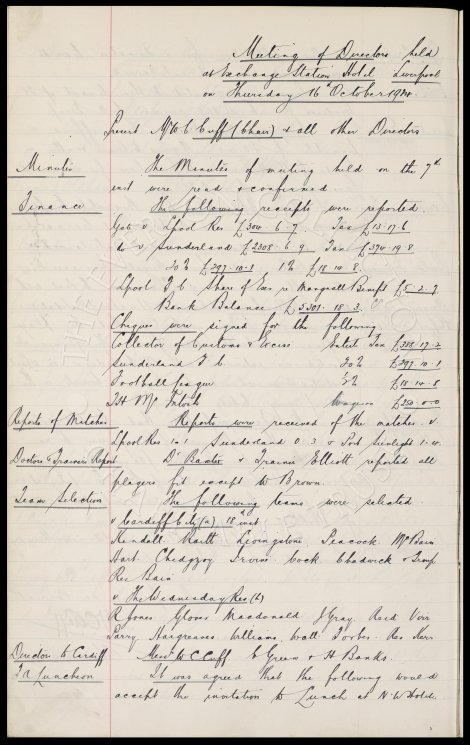 Meeting of Directors held
at Exchange Station Hotel Liverpool
on Thursday 16th October 1924.
Present Mr W C Cuff (Chair) & all other Directors
Minutes
The Minutes of meeting held on the 7th
inst were read & confirmed.
Finance
The following receipts were reported.
Gate v L'pool Res £304-6-7 Tax £13-17-6
do v Sunderland £2308-6-9 Tax £374-19-8
20% £297-10-1 1% £18-14-8.
L'pool F.C. Share of Gate v Benefit £5-2-9
Bank Balance £5301-18-3.
Cheques were signed for the following
Collector of Customs & Excise Entert Tax £388-17-2
Sunderland F.C. 20% £297-10-1
Football League 1% £18-14-8
T.H. McIntosh Wagers £250-0-0
Reports of Matches
Reports were received of the matches v.
L'pool Res 1-1 Sunderland 0-3 & Port Sunlight 1-0.
Doctors & Trainers Report
Dr Baxter & Trainer Elliott reported all
players fit except W Brown.
Team Selection
The following teams were selected.
v Cardiff City (a) 18th inst
Kendall Raitt Livingstone Peacock McBain
Hart Chedgzoy Irvine Cock Chadwick & Troup
Res Bain
v The Wednesday Res (h)
R Jones Glover Macdonald J Gray Reid Virr
Parry Hargreaves Williams Wall Forbes Res Kerr
Directors to Cardiff
Messrs W C Cuff E Green & H Banks.
F.A. Luncheon
It was agreed that the following would
accept the invitation to Lunch at N.W. Hotel.